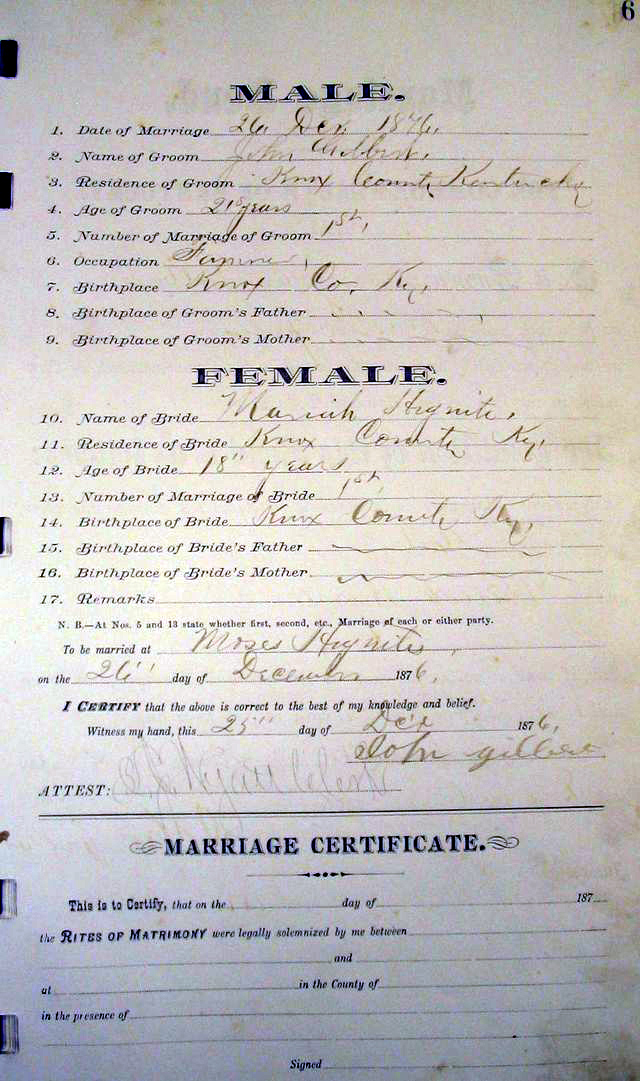 6
MALE.
1. Date of Marriage 26 Dec. 1876.
2. Name of Groom John Gilbert.
3. Residence of Groom Knox County Kentucky
4. Age of Groom 21 years
5. Number of Marriage of Groom 1st,
6. Occupation Farmer,
7. Birthplace Knox Co. Ky.
8. Birthplace of Groom's Father
9. Birthplace of Groom's Mother
FEMALE.
10. Name of Bride Mariah Hignite.
11. Residence of Bride Knox County Ky.
12. Age of Bride 18" years
13. Number of Marriage of Bride 1st,
14. Birthplace of Bride Knox County Ky,
15. Birthplace of Bride's Father
16. Birthplace of Bride's Mother
17. Remarks
N. B.—At Nos. 5 and 13 state whether first, second, etc., Marriage of each or either party.
To be married at Moses Hignites,
on the 26" day of December 1876.
I CERTIFY that the above is correct to the best of my knowledge and belief.
Witness my hand, this 25" day of Dec 1876,
John gilbert
ATTEST: Clerk
MARRIAGE CERTIFICATE.
This is to Certify, that on the day of 187
the RITES OF MATRIMONY were legally solemnized by me between
and
at in the County of
in the presence of
Signed